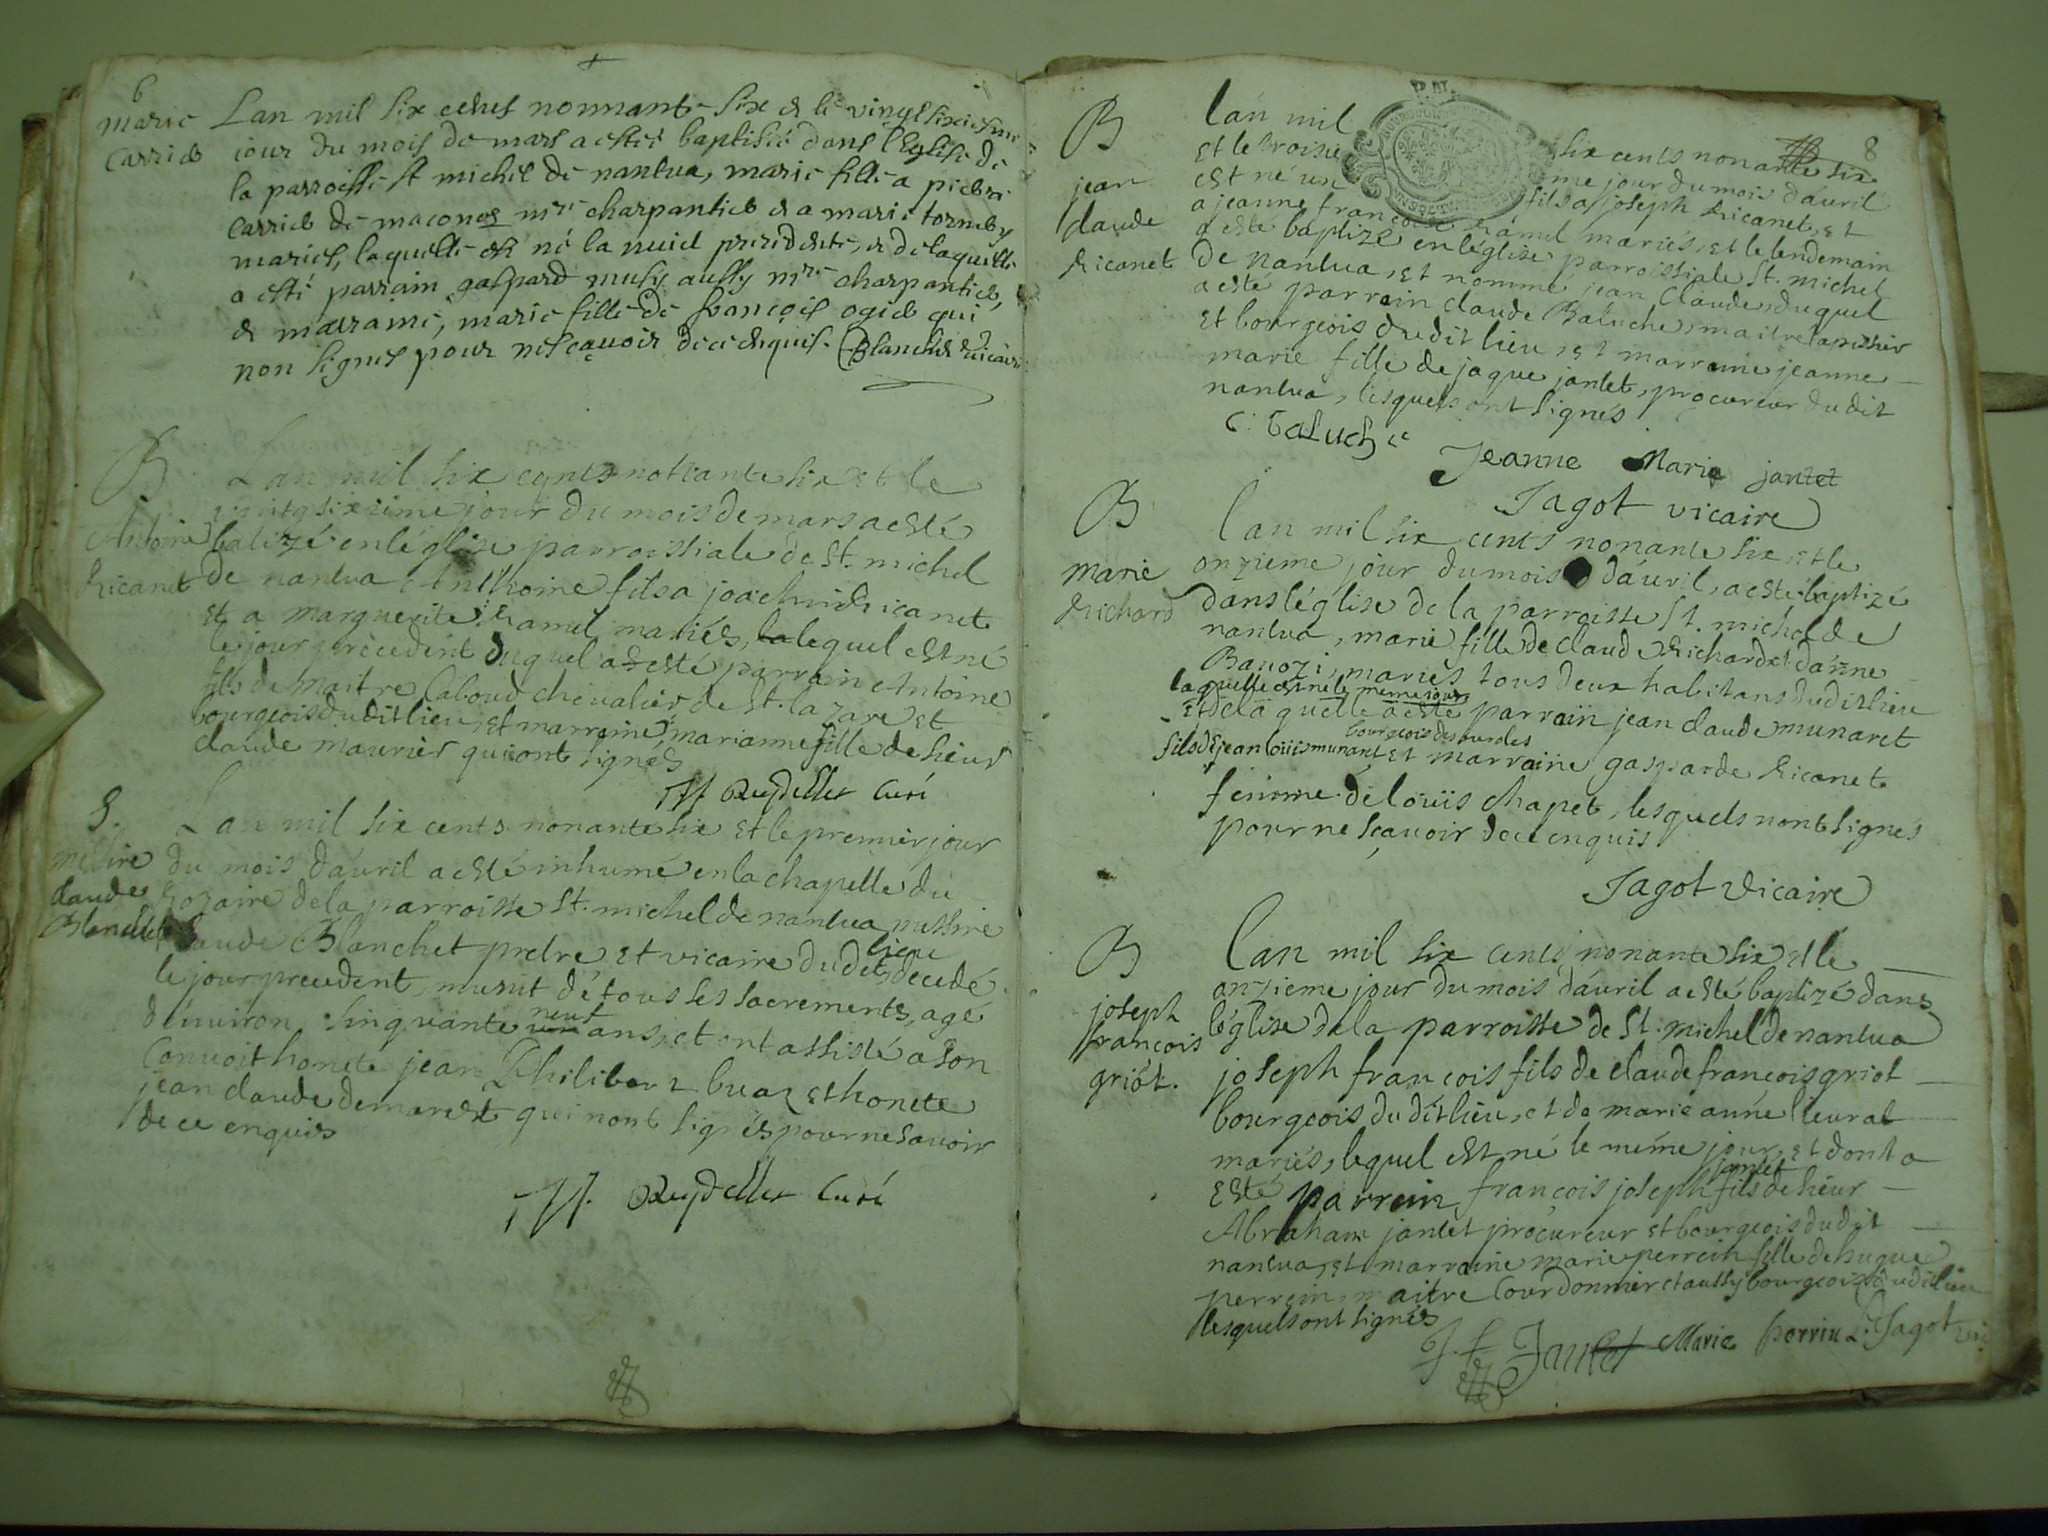 6
marie
Carrier
Lan mil six cents nonnante six et le vingt sixiesme
jour du mois de mars a esté baptisée dans l'Eglise de
la parroisse st michel de nantua, marie fille a pierre
Carrier de maconer mtre charpantier et a marie
mariés, laquelle est né la nuict precedente, et de laquelle
a esté parrain gaspard musy aussy mtre charpantier,
et marraine, marie fille de françois ogier qui
non signés pour nescavoir de ce enquis. Blanchet vicaire
B
Antoine
Ricanet
Lan mil six cents nonante six et le
vintg sixzieme jour du mois de mars a esté
batizé en léglise parroissiale de st. michel
de nantua Anthoine fils a joachim Ricanet
et a marguerite Ramel mariés, la lequel est né
le jour précedent duquel a esté parrain Antoine
fils de maitre Caboud chevalier de st. lazare et
bourgeois dudit lieu et marraine marianne fille de sieur
claude maurier qui ont signés
Ruydellet Curé
S.
messire
claude
Blanchet
Lan mil six cents nonante six et le premier jour
du mois dàuril a esté inhumé en la chapelle du
Rozaire de la parroisse st. michel de nantua messire
claude Blanchet pretre et vicaire dudit lieu decedé
le jour precedent, munit de tous ses sacrements, agé
dénuiron sinquante neuf ans, et ont assisté a son
Convoit honete jean Philibert buaz et honete
jean claude demarest qui nont signés pour ne savoir
de ce enquis
Ruydellet Curé
8
B
jean
claude
Ricanet
lan mil six cents nonante six
et le troisieme jour du mois dàuril
est né un fils a joseph Ricanet, et
a jeanne francoise Ramel mariés, et le lendemain
a esté baptizé en léglise parroissiale st. michel
de nantua, et nommé jean Claude, duquel
a esté parrain claude Baluche, maitre tapissier
et bourgeois dudit lieu, et marraine jeanne
marie fille de jaque jantet, procureur dudit
nantua, lesquels ont signés
C. Baluche
Jeanne Marie jantet
Jagot vicaire
B
marie
Richard
lan mil six cents nonante six et le
onzieme jour du mois dàuril, a esté baptizé
dans léglise de la parroisse st. michel de
nantua, marie fille de claude Richard et dànne
Bavozi, mariés tous deux habitans dudit lieu
laquelle est né le meme jour
et de la quelle a esté parrain jean claude munaret
bourgeois des
fils de jean louiis munaret et marraine gasparde Ricanet
femme de louïs chapet, lesquels nont signés
pour ne sçauoir de ce enquis
Jagot vicaire
B
joseph
francois
griót.
lan mil six cents nonante six et le
onzieme jour du mois dàuril a esté baptizé dans
léglise de la parroisse de st. michel de nantua
joseph francois fils de claude francois griot
bourgeois du dit lieu, et de marie anne lieurat
mariés, lequel est né le méme jour, et dont a
esté parrein françois joseph jantet fils de sieur
Abraham jantet procureur et bourgeois dudit
nantua, et marraine marie perrein fille de hugue
perrein, maitre Courdonnier et aussy bourgeois dudit lieu
lesquels ont signés
J. f. Jantet Marie perrin Jagot vic